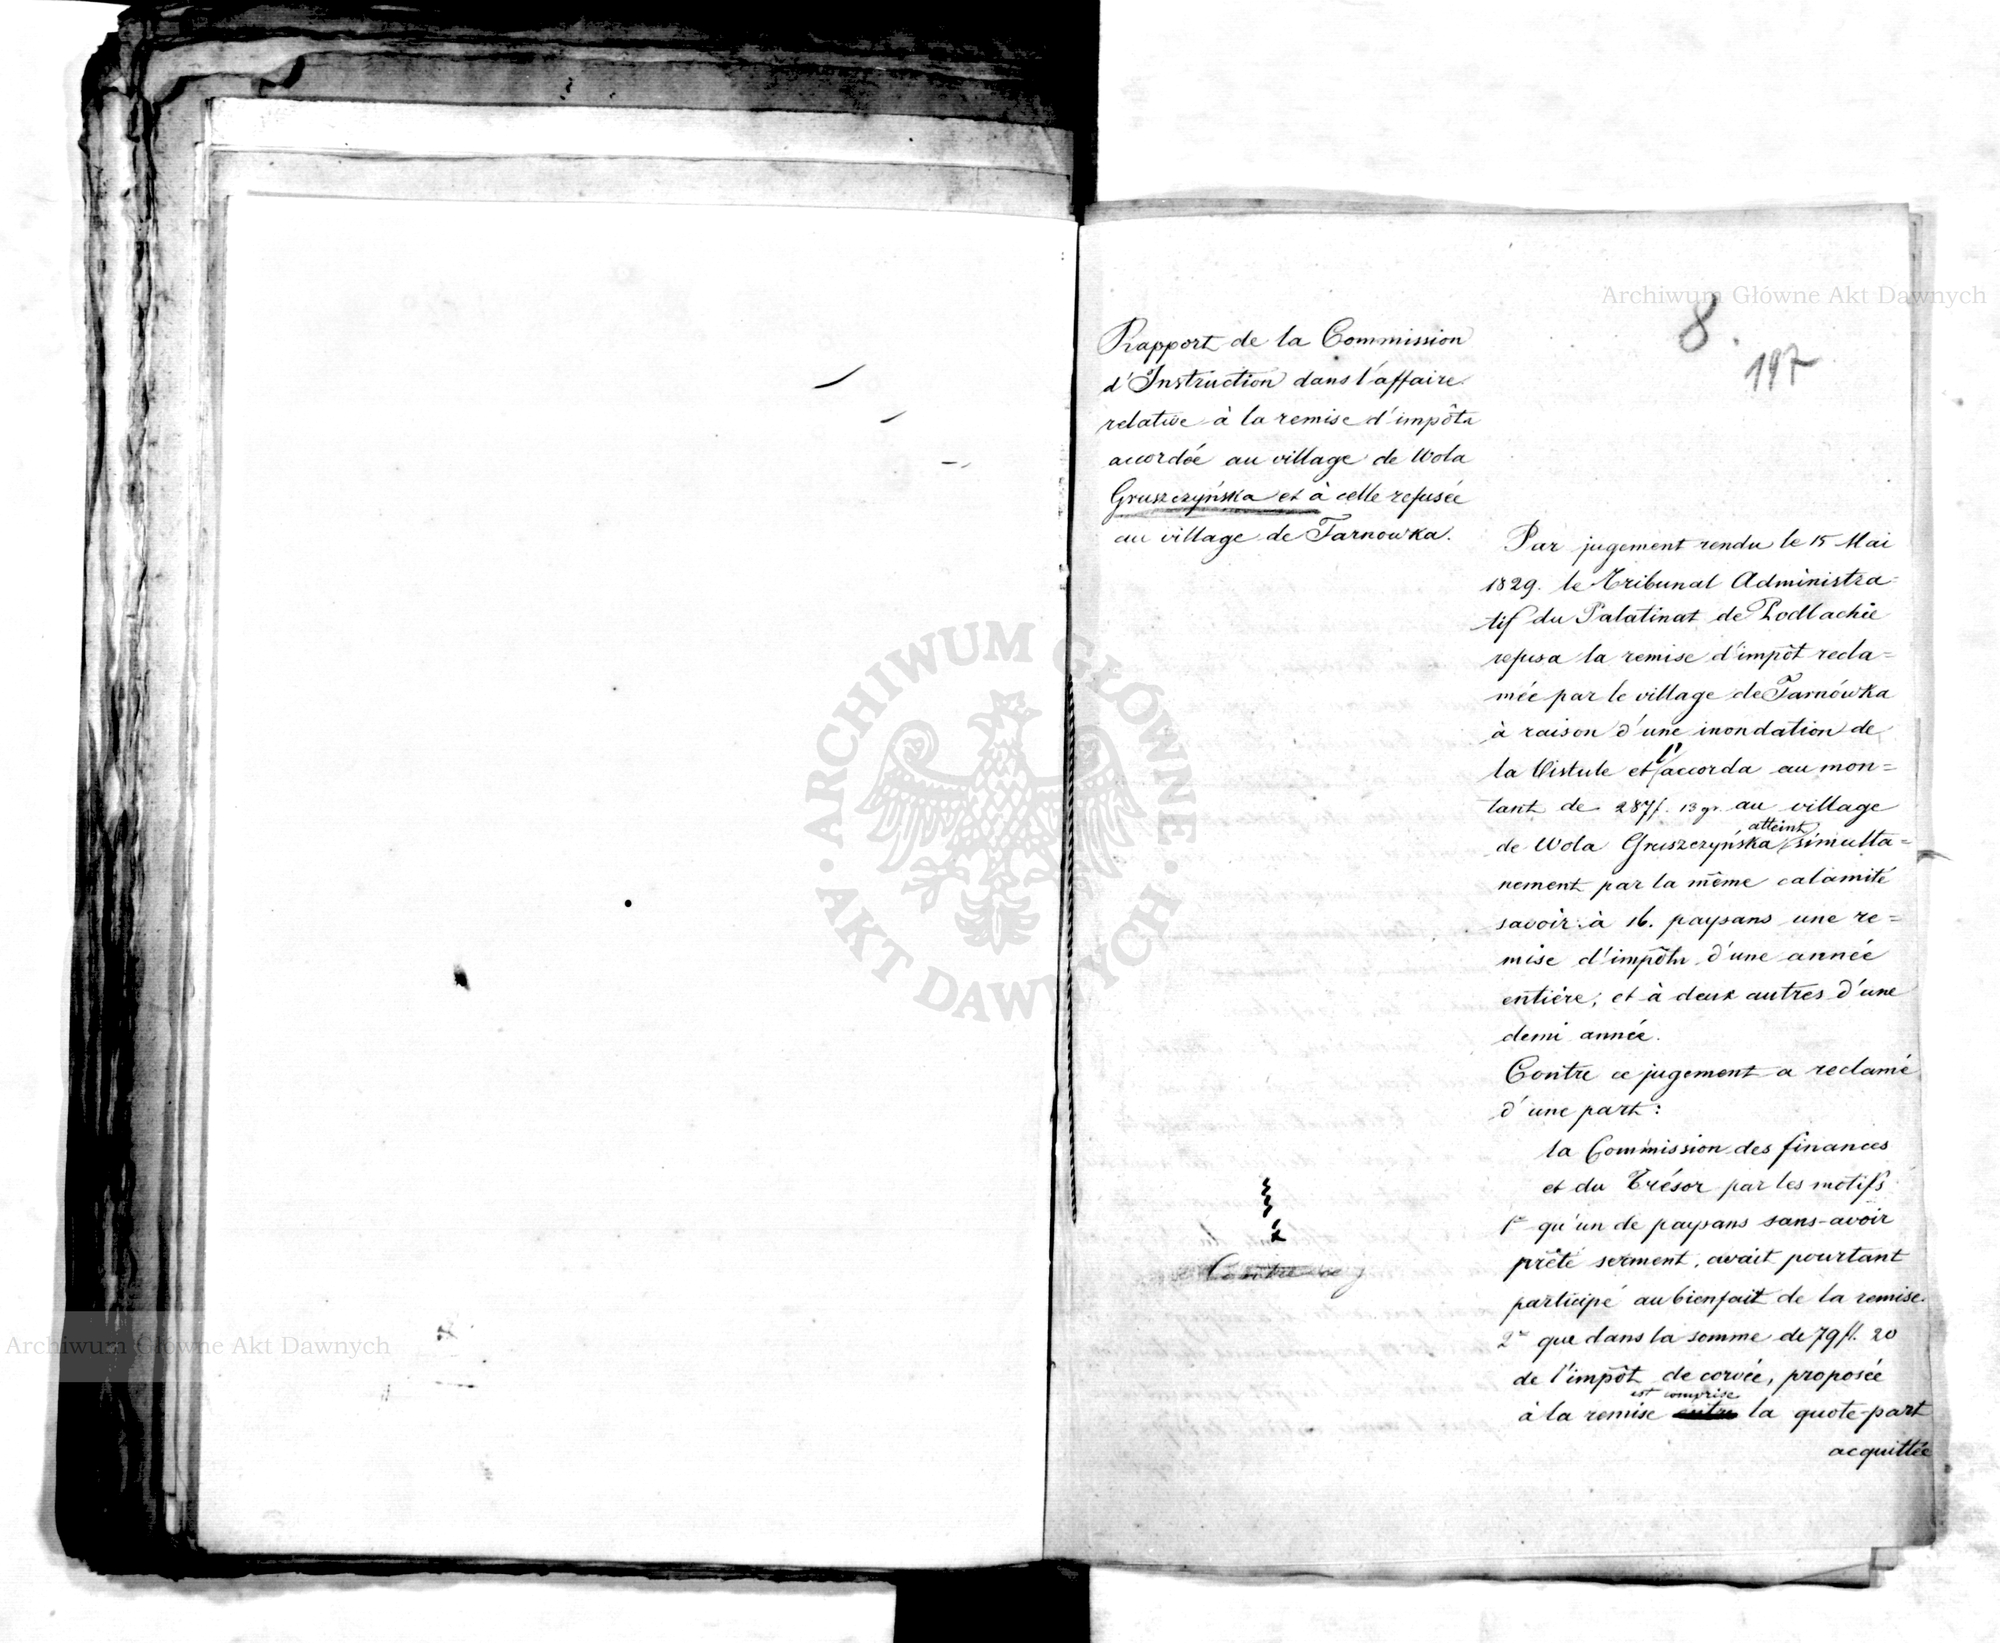 Archiwum Główne Akt Dawnych
8.
197
Rapport de la Commission
d'Instruction dans l'affaire
relative à la remise d'impôts
accordée au village de Wola
Gruszczyńska et à celle refusée
au village de Tarnowka.
Par jugement rendu le 15 Mai
1829. le Tribunal Administra-
tif du Palatinat de Podlachie
refusa la remise d'impôt recla=
mée par le village de Tarnówka
à raison d'une inondation de
la Vistule et l'accorda au mon=
tant de 287f. 13 gr. au village
de Wola Gruszczyńska atteint simulta=
nement par la même calamité
savoir: à 16. paysans une re=
mise d'impôts d'une année
entière, et à deux autres d'une
demi année.
Contre ce jugement a reclamé
d'une part:
la Commission des finances
et du Trésor par les motifs
1º qu'un de paysans sans avoir
prêté serment, avait pourtant
participé au bienfait de la remise.
2º que dans la somme de 79 fl. 20
de l'impôt de corvée, proposée
à la remise est comprise entre la quote-part
acquittée
Contre ce j
ARCHIWUM GŁÓWNE
AKT DAWNYCH
Archiwum Główne Akt Dawnych